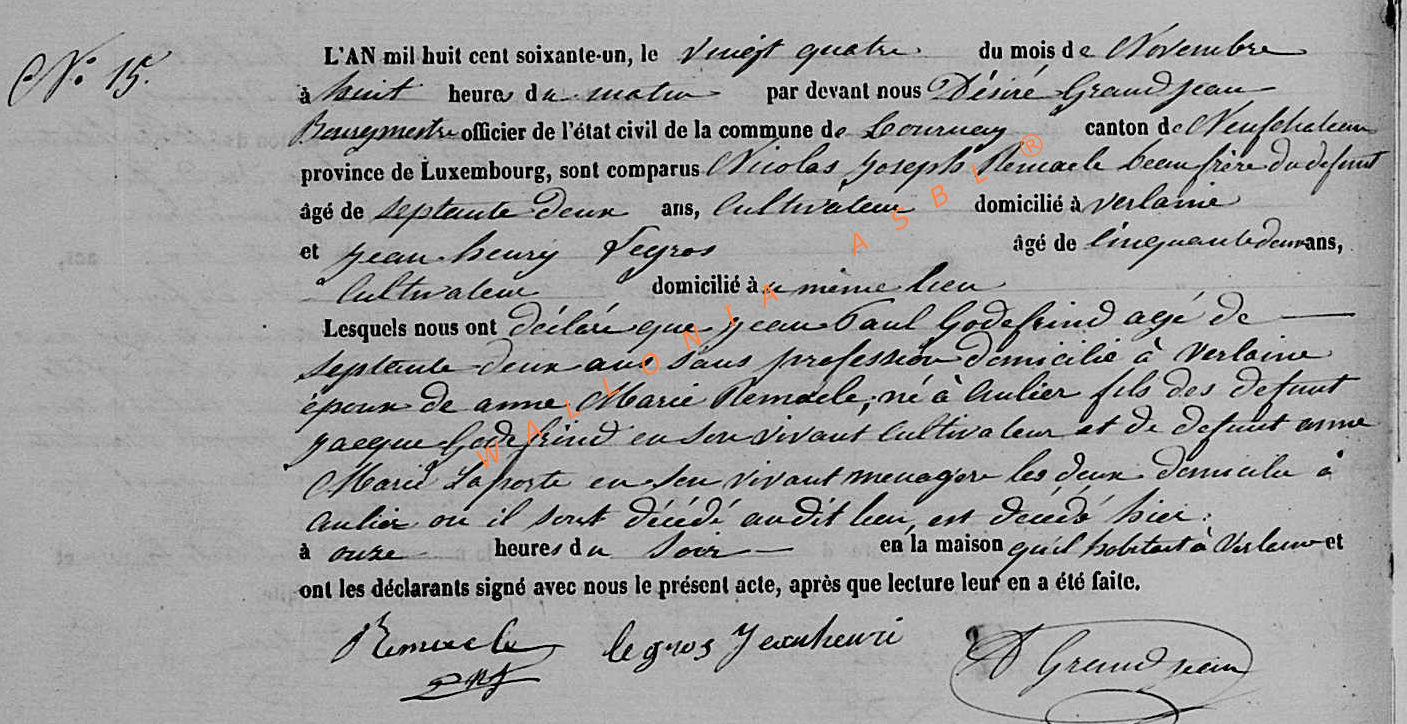 N° 15.
L'AN mil huit cent soixante-un, le vingt quatre du mois de Novembre
à huit heures du matin par devant nous Désiré Grandjean
Bourgmestre officier de l'état civil de la commune de Tournay canton de Neufchateau
province de Luxembourg, sont comparus Nicolas Joseph Remacle beau frère du defunt
âgé de septante deux ans, Cultivateur domicilié à Verlaine
et Jean henry Legros âgé de Cinquante deux ans,
Cultivateur domicilié au même lieu
Lesquels nous ont déclaré que Jean Paul Godefrind agé de
septante deux ans sans profession domicilié à Verlaine
époux de anne Marie Remacle, né à Anlier fils des defunt
Jacque Godefrind en son vivant Cultivateur et de defunt anne
Marie Laporte en son vivant menagere les deux domicilie à
Anlier ou il sont décédé audit lieu, est décédé hier
à onze heures du Soir en la maison qu'il habitait à Verlaine et
ont les déclarants signé avec nous le présent acte, après que lecture leur en a été faite.
Remacle legros Jeanhenri D Grandjean
WALLONIA ASBL ®